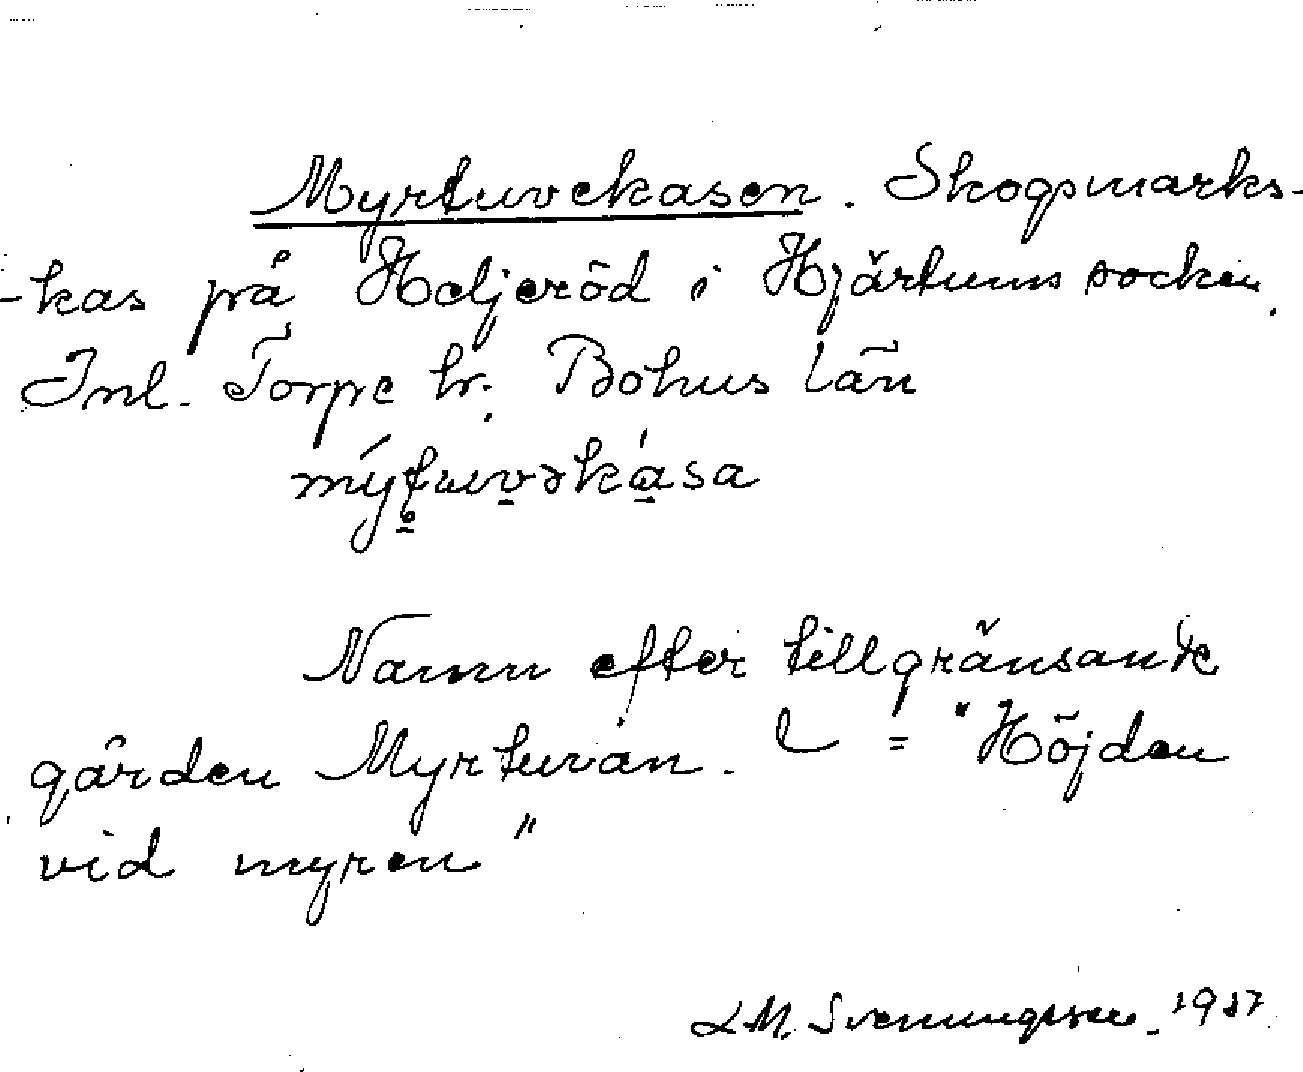 Myrtuvekasen. Skogsmarks-
-kas på Heljeröd i Hjärtums socken.
Inl. Torpe hr. Bohus län
Namn efter tillgränsande
gården Myrtuvan. = "Höjden
vid myren"
L M. Svenungsson. 1917